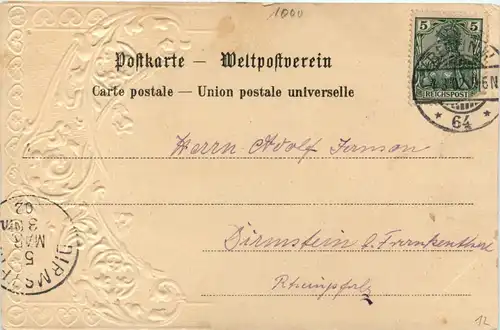 1000
Postkarte — Weltpostverein
Carte postale — Union postale universelle
5 5
REICHSPOST
6N
* 64 *
Herrn Adolf Jermon
Dirmstein b. Frankenthal
Rheinpfalz
DIRMS
5
MAR
3 Nm
02
12